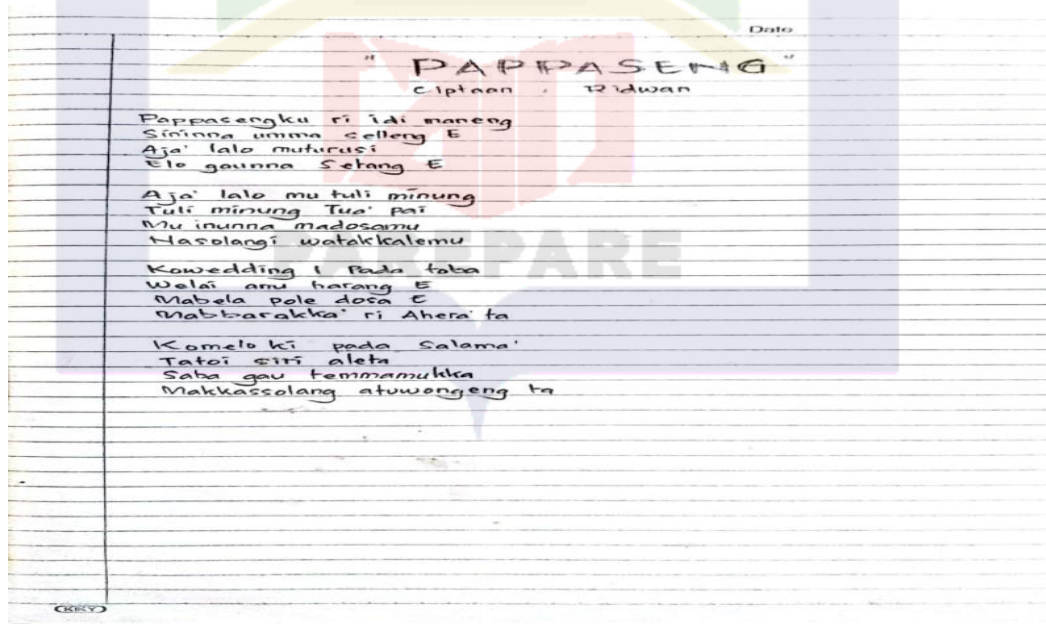 Date
" PAPPASENG "
Ciptaan . Ridwan
Pappasengku ri idi maneng
Sininna umma selleng E
Aja' lalo muturusi
Elo gaunna Setang E
Aja' lalo mu tuli minung
Tuli minung Tua' pai
Mu inunna madosamu
Nasolangi watakkalemu
Kowedding i Pada toba
Welai anu harang E
Mabela pole dosa E
Mabbarakka' ri Ahera' ta
Komelo ki pada Salama'
Tatoi siri aleta
Saba gau temmamukka
Makkassolang atuwongeng ta
KKY
PAREPARE